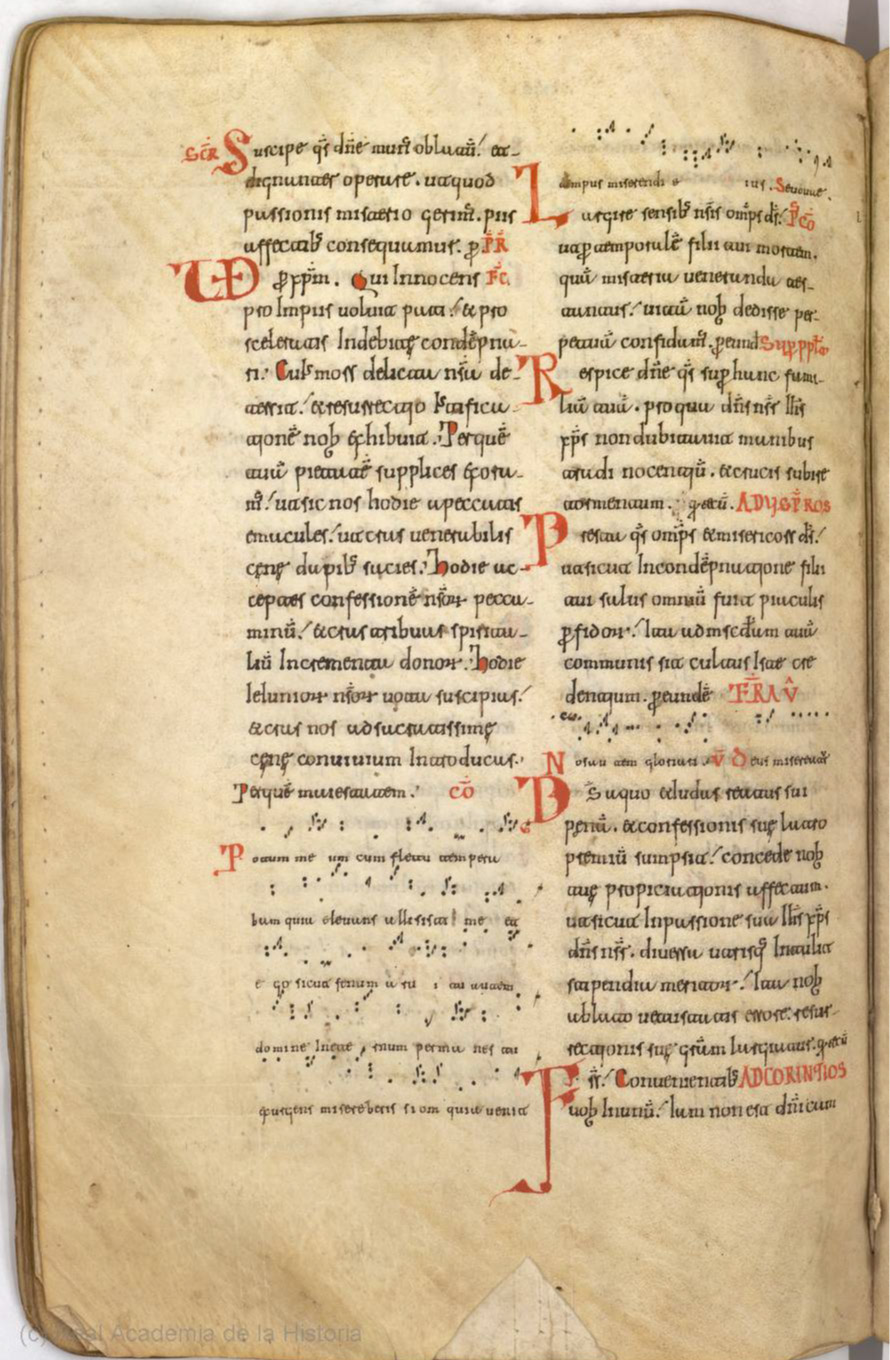 SCR̄ Suscipe q̄s dn̄e mun̄ oblatū. et
dignanter operare. ut quod
passionis misterio gerim̄. piis
affectib; consequamur. p̄ P̄R
VD p̄ xp̄m. Qui Innocens FC̄
pro Impiis voluit pati. & pro
sceleratis Indebitę condēpna-
ri. Cuius mors delicta nr̄a de-
tersit. & resurrectio Iustifica-
tionē nob̄ exhibuit. Per quē
tuā pietatē supplices exora-
m̄. ut sic nos hodie a peccatis
emacules. ut cras venerabilis
cęnę dapib; sacies. Hodie ac-
ceptes confessionē nr̄oꝝ pecca-
minū. & cras tribuas spirita-
liū Incrementa donoꝝ. Hodie
Ieiunioꝝ nr̄oꝝ vota suscipias.
& cras nos ad sacratissimę
cęnę convivium Introducas.
Per quē maiestatem. CŌ
Potum me um cum fletu tempera
bam quia elevans allisisti me et
e go sicut fenum a ru i tu autem
domine Ineter num perma nes tu
exurgens misereberis sion quia venit
tempus miserendi e ius. Seuouae.
Largire sensib; nr̄is omp̄s d̄s. P̄CŌ
ut p̄ temporalē filii tui mortem.
quā misteria veneranda tes-
tantur. vitā nob̄ dedisse per-
petuā confidam̄. p̄ eund Sup̄ pplo
Respice dn̄e q̄s sup̄ hanc fami-
liā tuā. pro qua dn̄s nr̄ Ih̄s
xp̄s non dubitavit manibus
tradi nocentiū. & crucis subire
tormentum. q̄ tecū. AD VESPROS
Presta q̄s omp̄s & misericors d̄s.
ut sicut Incondēpnatione filii
tui salus omniū fuit piaculis
p̄fidoꝝ. Ita ad misc̄diam tuā
communis sit cultus Iste cre
dentium. p̄ eundē FERIA V̄
Nos au tem gloriari V̄ Deus misereat̄
Ds a quo & Iudas reatus sui
penā. & confessionis suę latro
premiū sumpsit. concede nob̄
tuę propiciationis affectum.
ut sicut Inpassione sua Ih̄s xp̄s
dn̄s nr̄. diversa utrisq; Intulit
stipendia meritoꝝ. Ita nob̄
ablato vetustatis errore. resur-
rectionis suę gr̄am largiatur. q̄ tecū
Fr̄s. Convenientib; AD CORINTIOS
vob̄ Inunū. Iam non est dn̄icam
(c) Real Academia de la Historia